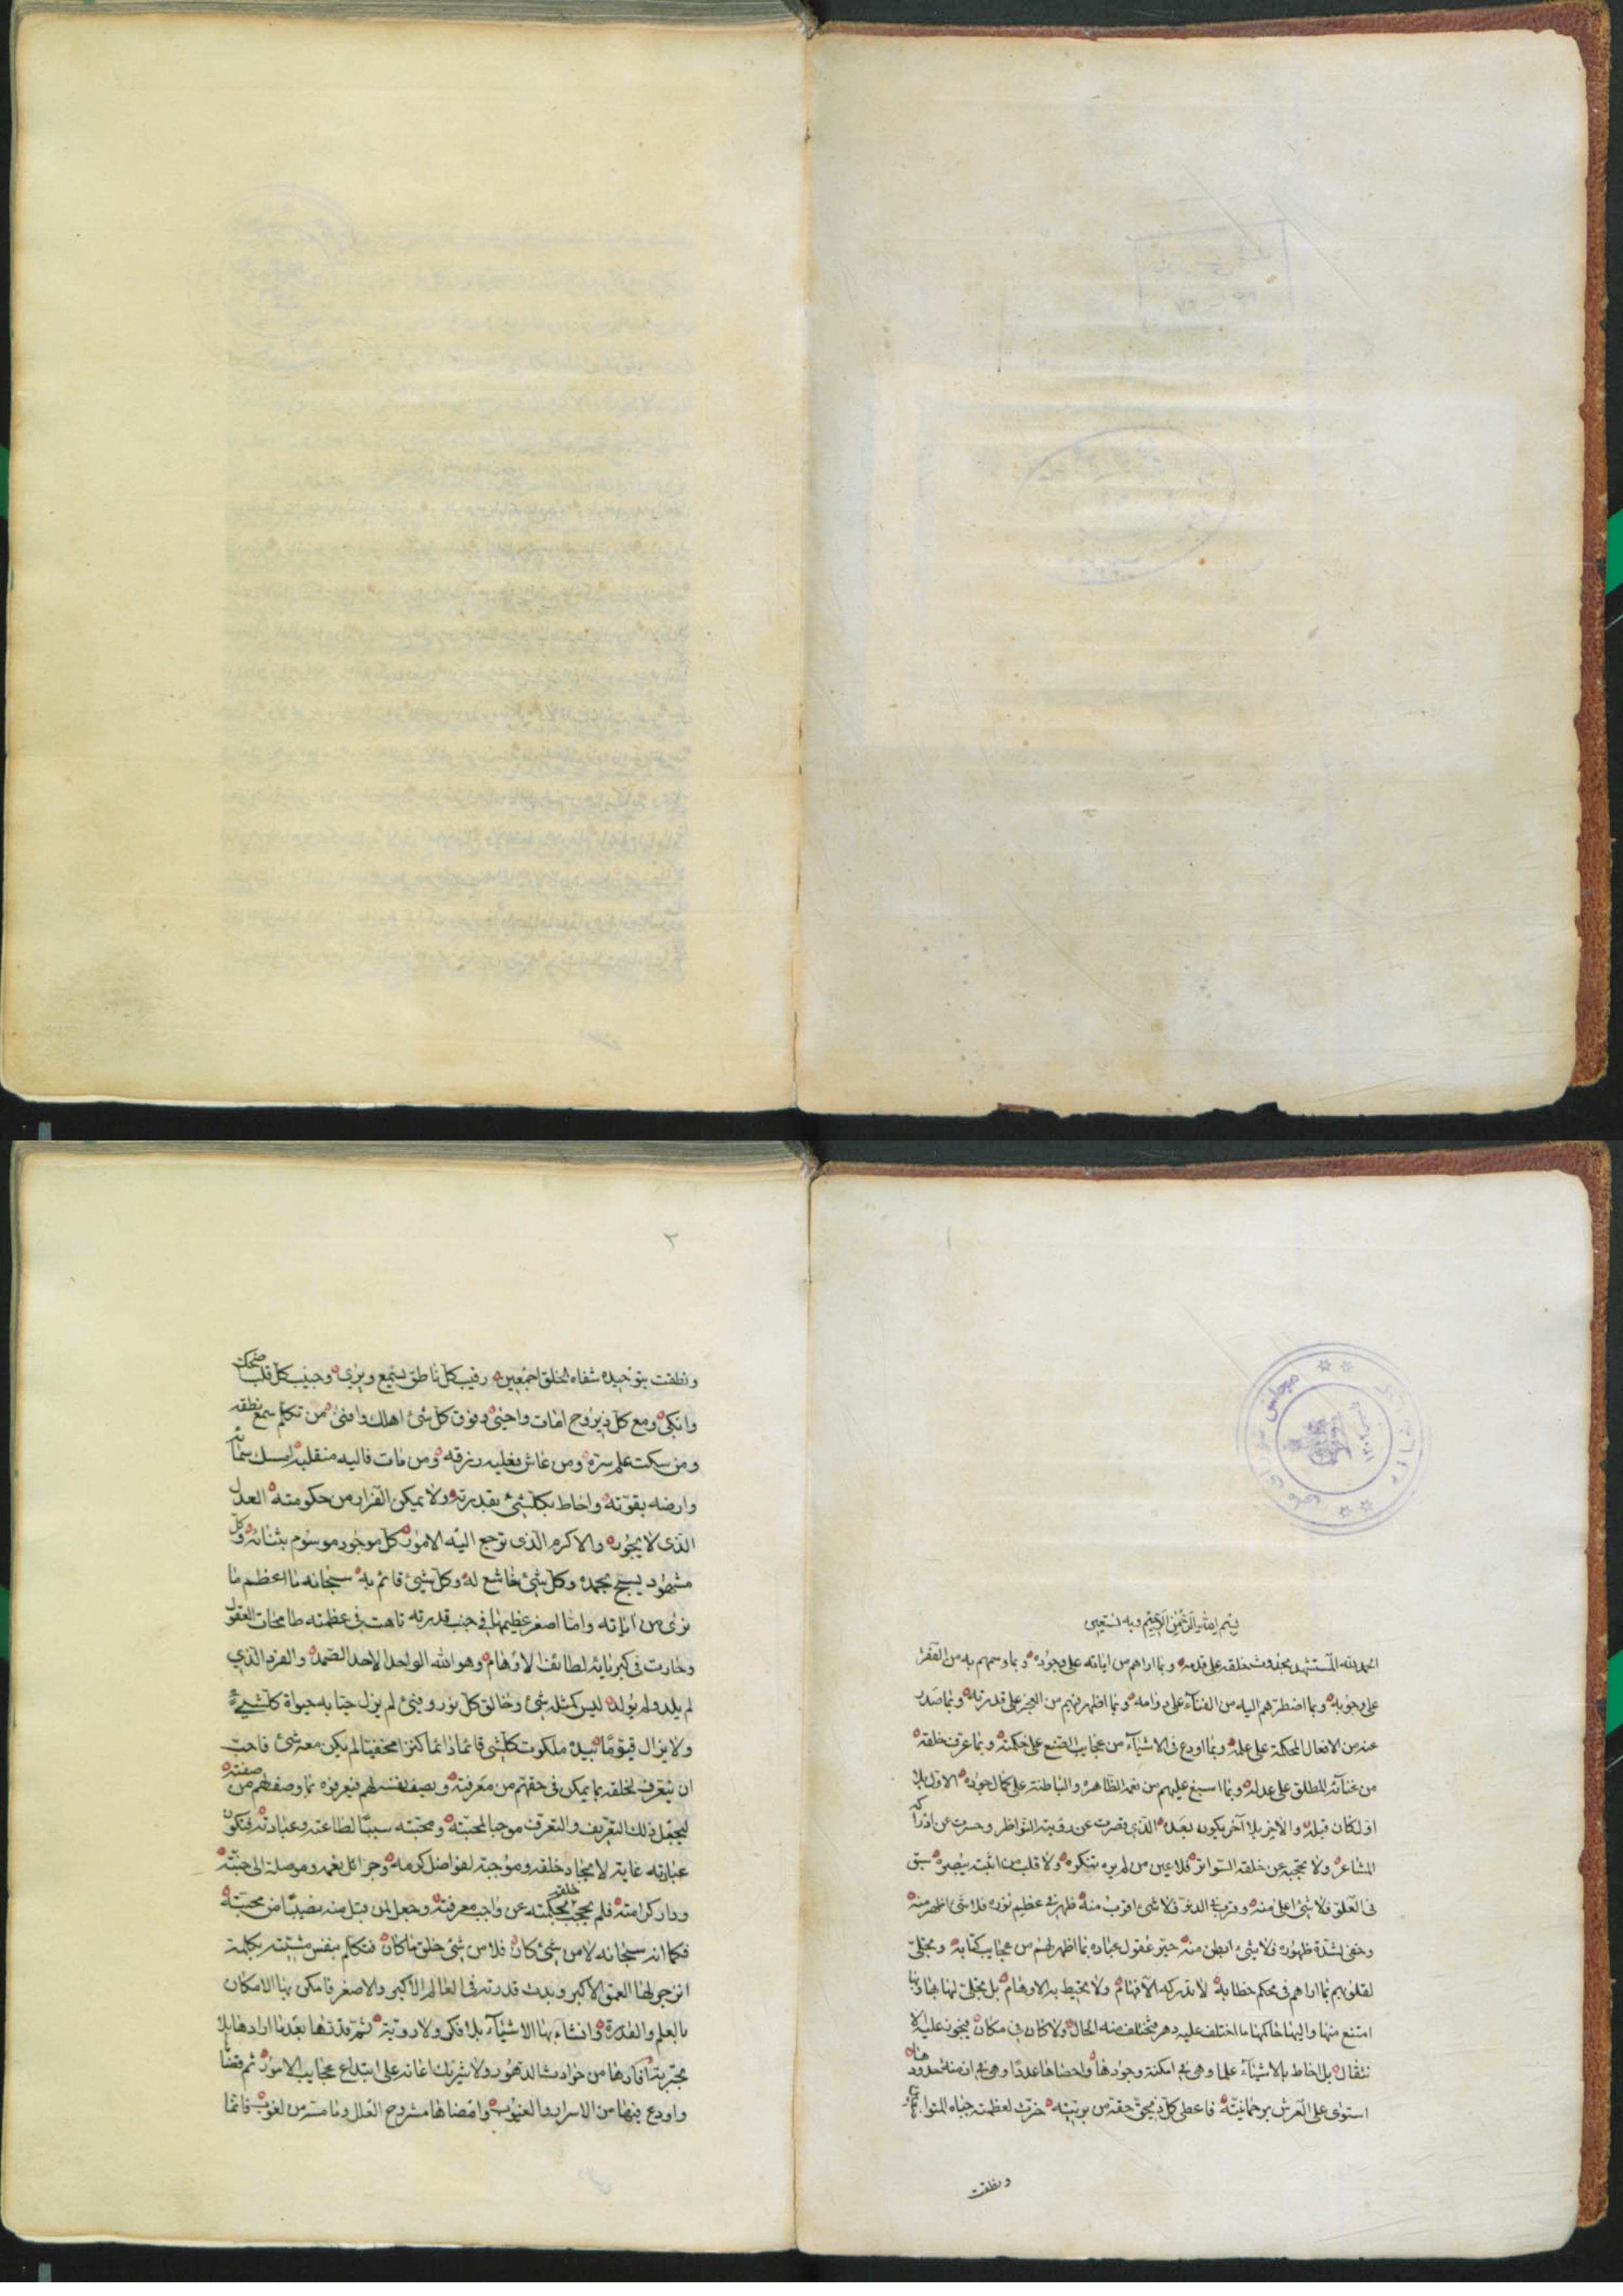 بسم الله الرحمن الرحيم وبه نستعين
الحمد لله المستشهد بحدوث خلقه على قدمه وبما اراهم من اياته على وجوده وبما وسمهم به من الفقر
على وجوبه وبما اضطرهم اليه من الفناء على دوامه وبما اظهر فيهم من العجز على قدرته وبما صدر
عنه من الافعال المحكمة على علمه وبما اودع في الاشياء من عجايب الصنع على حكمته وبما عرف خلقه
من غنائه المطلق على عدله وبما اسبغ عليهم من نعمه الظاهرة والباطنة على كمال جوده الاول بلا
اول كان قبله والآخر بلا آخر يكون بعده الذي قصرت عن رؤيته النواظر وحسرت عن ادراكه
المشاعر ولا تحجبه عن خلقه السواتر فلا عين من لم يره تنكره ولا قلب من اثبته يبصره سبق
في العلو فلا شئ اعلى منه وقرب في الدنو فلا شئ اقرب منه ظهر في عظيم نوره فلا شئ اظهر منه
وخفى لشدة ظهوره فلا شئ ابطن منه حير عقول عباده بما اظهر لهم من عجايب كتابه وتجلى
لقلوبهم بما اراهم في محكم خطابه لا تدركه الافهام ولا تحيط به الاوهام بل تجلى لها بها وبها
امتنع منها واليها حاكمها ما اختلف عليه دهر فيختلف منه الحال ولا كان في مكان فيجوز عليه الا
نتقال بل احاط بالاشياء علما وهي في امكنة وجودها واحصاها عددا وهي في ازمنة حدودها
استوى على العرش برحمانيته فاعطى كل ذي حق حقه من بريته خرت لعظمته جباه
ونطقت
٢
ونطقت بتوحيده شفاه الخلق اجمعين رقيب كل ناطق يسمع ويرى وحبيب كل قلب اضحك
وابكى ومع كل ذي روح امات واحيى وفوق كل شئ اهلك وافنى من تكلم سمع نطقه
ومن سكت علم سره ومن عاش فعليه رزقه ومن مات فاليه منقلبه امسك سمائه
وارضه بقوته واحاط بكل شئ بقدرته ولا يمكن الفرار من حكومته العدل
الذي لا يجور والاكرم الذي ترجع اليه الامور كل موجود موسوم بثنائه وكل
مشهود يسبح بحمده وكل شئ خاشع له وكل شئ قائم به سبحانه ما اعظم ما
نرى من اياته وما اصغر عظيمها في جنب قدرته تاهت في عظمته طامحات العقول
وحارت في كبريائه لطائف الاوهام وهو الله الواحد الاحد الصمد والفرد الذي
لم يلد ولم يولد ليس كمثله شئ وخالق كل نور وفيئ لم يزل حيا به حيوة كل شئ
ولا يزال قيوما بيده ملكوت كل شئ قائما دائما كنزا مخفيا لم يكن معه شئ فاحب
ان يتعرف لخلقه بما يمكن في حقهم من معرفته ويصف نفسه لهم فيعرفوه بما وصف لهم من صفته
ليجعل ذلك التعريف والتعرف موجبا لمحبته ومحبته سببا لطاعته وعبادته فتكون
عبادته غاية لايجاد خلقه وموجبة لفواضل كرمه وجزائل نعمه وموصلة الى جنته
ودار كرامته فلم يحجب بحكمته خلقه عن واجب معرفته وجعل لمن قبل منه نصيبا من محبته
فكما انه سبحانه لا من شئ كان فلا من شئ خلق ما كان فتكلم بنفس مشيته بكلمة
انزجر لها العمق الاكبر وبدت قدرته في العالم الاكبر والاصغر فامكن بها الامكان
بالعلم والقدرة وانشاء بها الاشياء بلا فكر ولا روية ثم قدرها بعد ما ارادها بلا
تجربة افادها من حوادث الدهور ولا شريك اعانه على ابتداع عجايب الامور ثم قضا
واودع فيها من الاسرار والغيوب وامضاها مشروح العلل وما مسه من لغوب فانما